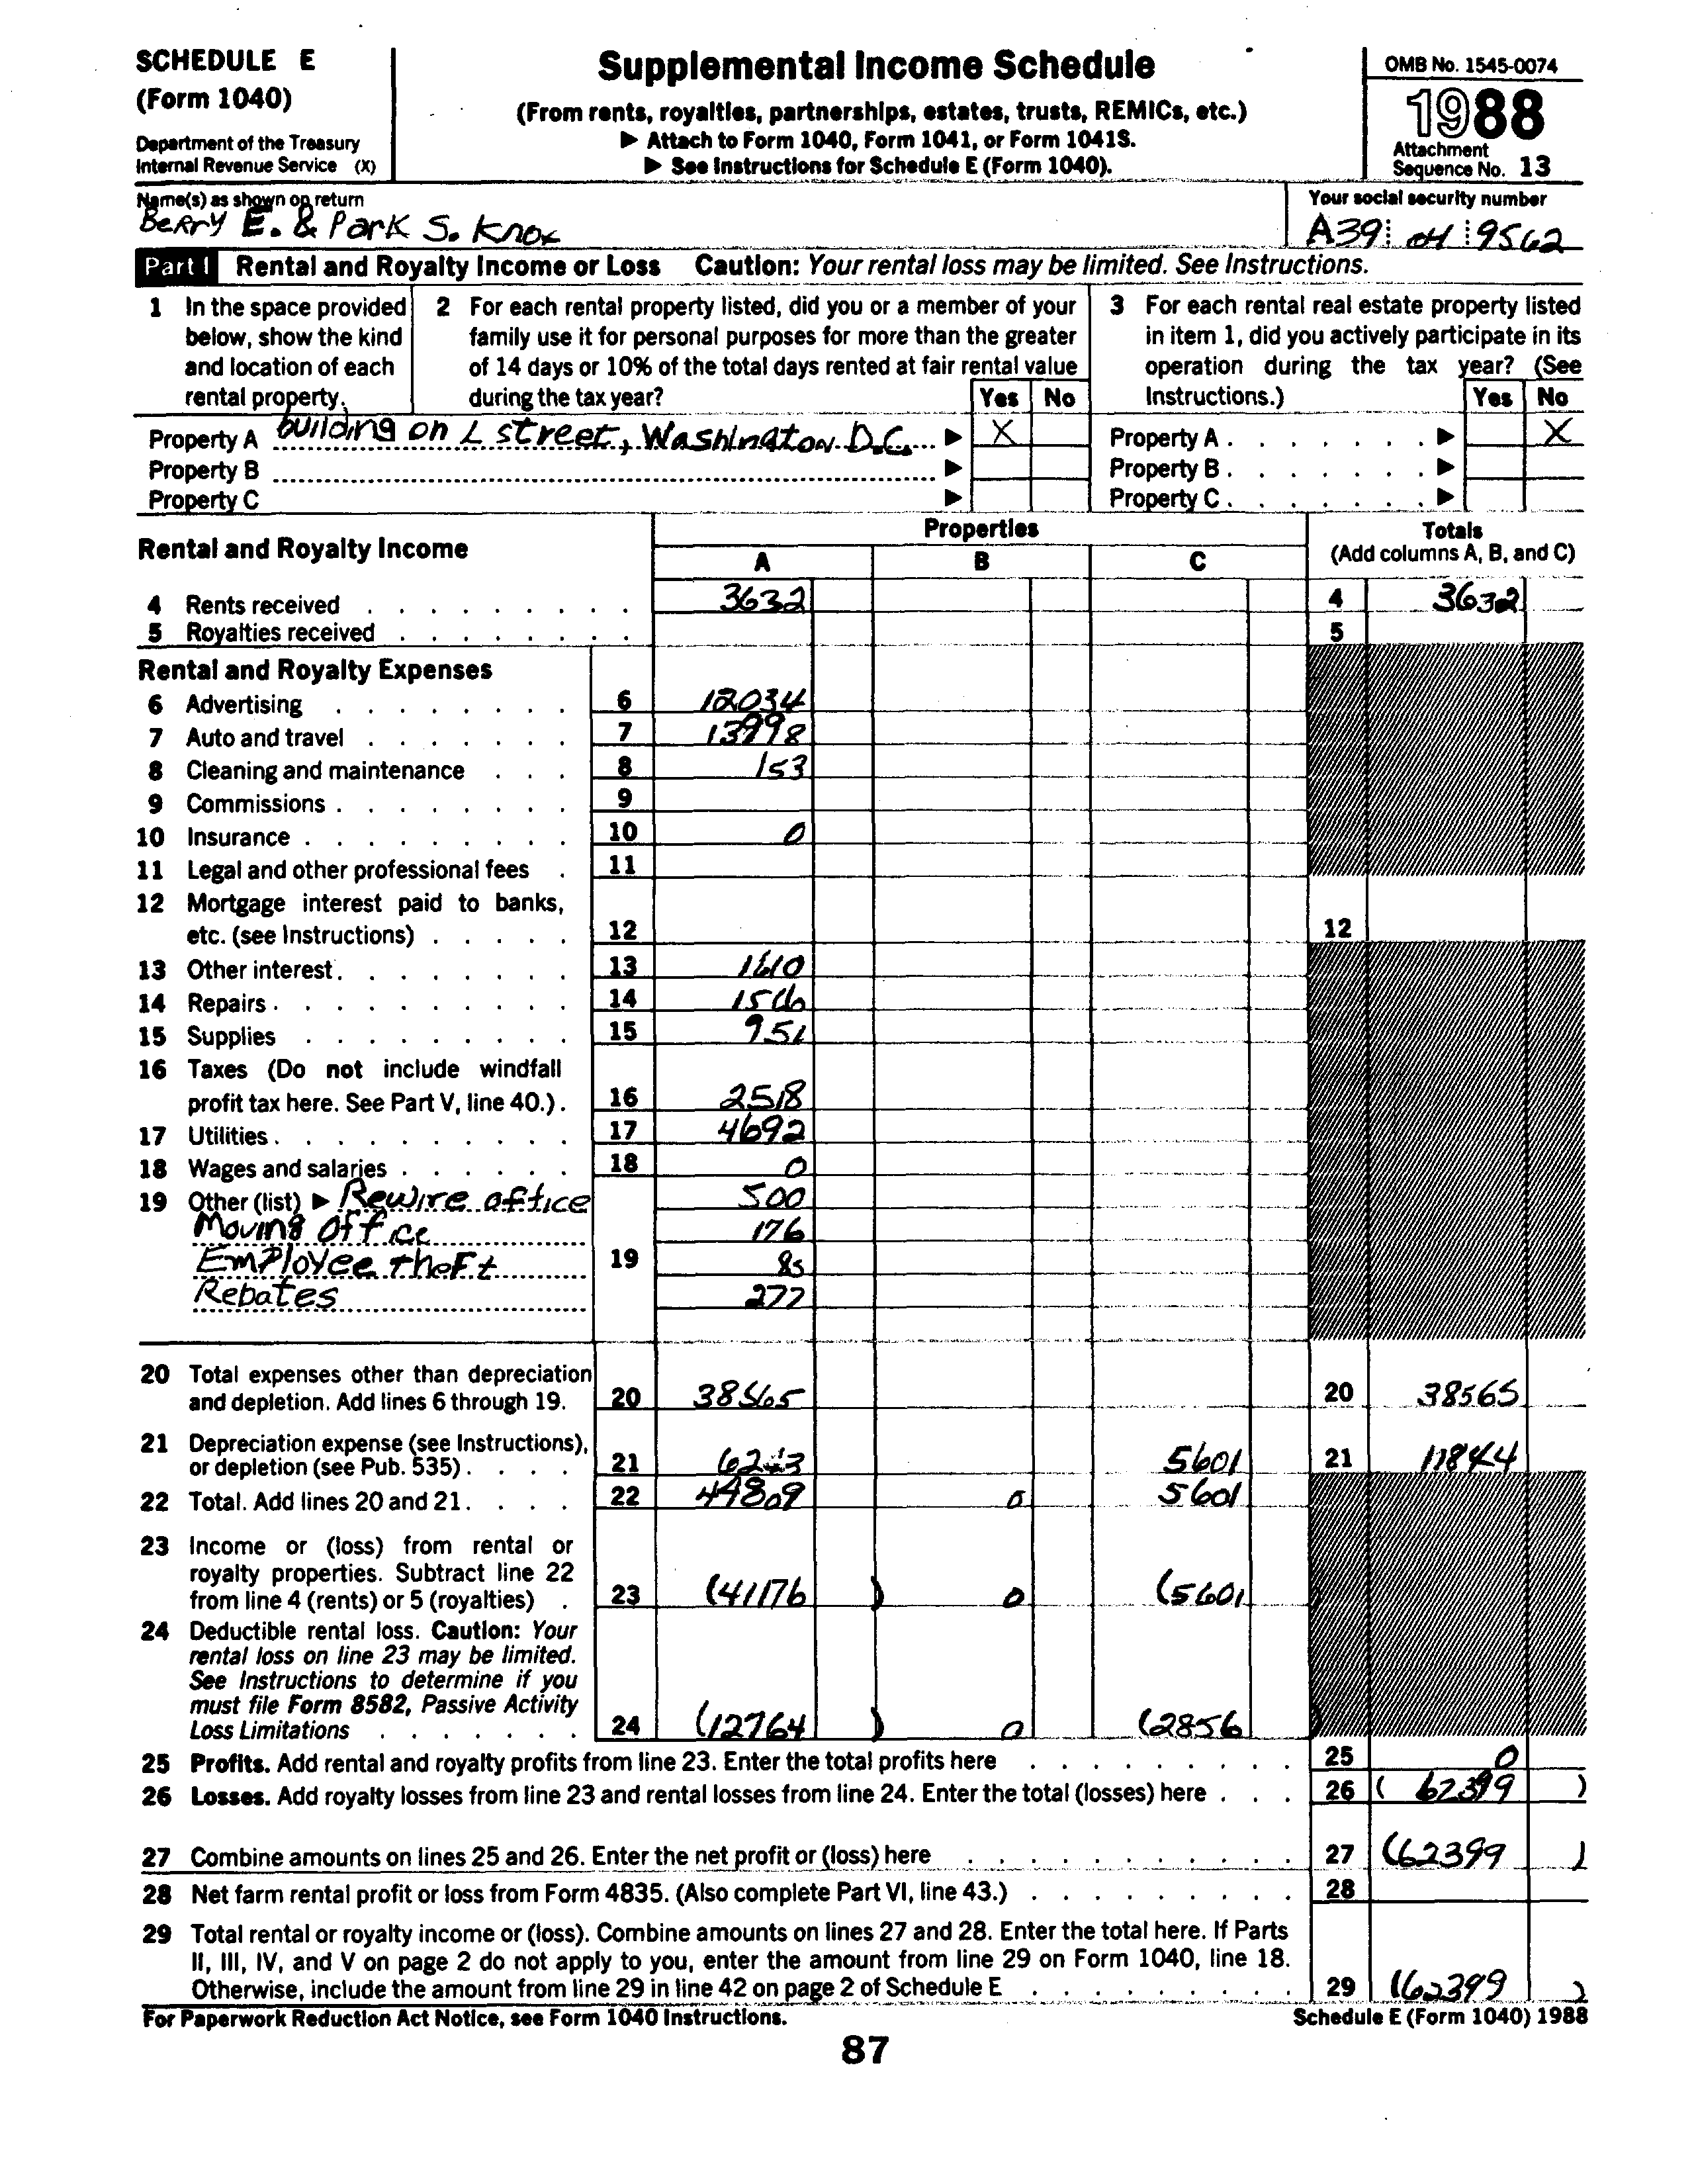 SCHEDULE E
(Form 1040)
Department of the Treasury
Internal Revenue Service (X)
Supplemental Income Schedule
(From rents, royalties, partnerships, estates, trusts, REMICs, etc.)
▶ Attach to Form 1040, Form 1041, or Form 1041S.
▶ See Instructions for Schedule E (Form 1040).
OMB No. 1545-0074
1988
Attachment
Sequence No. 13
Name(s) as shown on return
Berry E. & Park S. Knox
Your social security number
A39 04 9562
Part I Rental and Royalty Income or Loss Caution: Your rental loss may be limited. See Instructions.
1 In the space provided below, show the kind and location of each rental property.
2 For each rental property listed, did you or a member of your family use it for personal purposes for more than the greater of 14 days or 10% of the total days rented at fair rental value during the tax year?
Yes No
3 For each rental real estate property listed in item 1, did you actively participate in its operation during the tax year? (See Instructions.)
Yes No
Property A building on L street, Washington D.C. ▶ X
Property A ▶ X
Property B ▶
Property B ▶
Property C ▶
Property C ▶
Rental and Royalty Income
Properties
A B C
Totals
(Add columns A, B, and C)
4 Rents received 3632 4 3632
5 Royalties received 5
Rental and Royalty Expenses
6 Advertising 6 12034
7 Auto and travel 7 13998
8 Cleaning and maintenance 8 153
9 Commissions 9
10 Insurance 10 0
11 Legal and other professional fees 11
12 Mortgage interest paid to banks,
etc. (see Instructions) 12 12
13 Other interest 13 1610
14 Repairs 14
15 Supplies 15 951
16 Taxes (Do not include windfall
profit tax here. See Part V, line 40.) 16 2518
17 Utilities 17 4692
18 Wages and salaries 18 0
19 Other (list) ▶ Rewire office 500
Moving office 176
Employee theft 19 85
Rebates 277
20 Total expenses other than depreciation
and depletion. Add lines 6 through 19. 20 38565 20 38565
21 Depreciation expense (see Instructions),
or depletion (see Pub. 535) 21 6243 5601 21 11844
22 Total. Add lines 20 and 21 22 44809 0 5601
23 Income or (loss) from rental or
royalty properties. Subtract line 22
from line 4 (rents) or 5 (royalties) 23 (41176) 0 (5601
24 Deductible rental loss. Caution: Your
rental loss on line 23 may be limited.
See Instructions to determine if you
must file Form 8582, Passive Activity
Loss Limitations 24 (12764) 0 (2856
25 Profits. Add rental and royalty profits from line 23. Enter the total profits here 25 0
26 Losses. Add royalty losses from line 23 and rental losses from line 24. Enter the total (losses) here 26 ( 62399 )
27 Combine amounts on lines 25 and 26. Enter the net profit or (loss) here 27 (62399 )
28 Net farm rental profit or loss from Form 4835. (Also complete Part VI, line 43.) 28
29 Total rental or royalty income or (loss). Combine amounts on lines 27 and 28. Enter the total here. If Parts
II, III, IV, and V on page 2 do not apply to you, enter the amount from line 29 on Form 1040, line 18.
Otherwise, include the amount from line 29 in line 42 on page 2 of Schedule E 29 (62399 )
For Paperwork Reduction Act Notice, see Form 1040 Instructions.
Schedule E (Form 1040) 1988
87